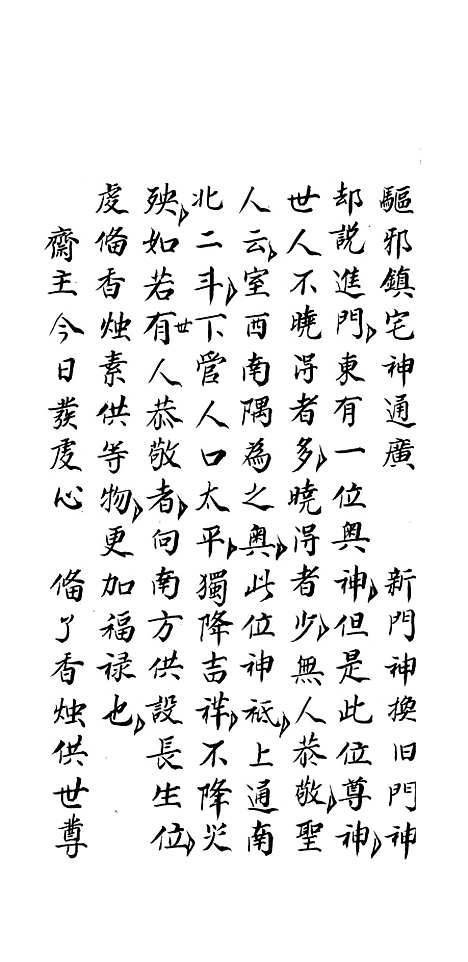 驅邪鎮宅神通廣　新門神換旧門神
却説進門、東有一位奥神、但是此位尊神、
世人不曉得者多、曉得者少、無人恭敬、聖
人云、室西南隅為之奥、此位神祗、上通南
北二斗、下管人口太平、獨降吉祥、不降災
殃、如若有世人恭敬者、向南方供設長生位、
虔俻香烛素供等物、更加福禄也、
齋主今日發虔心　俻了香烛供世尊